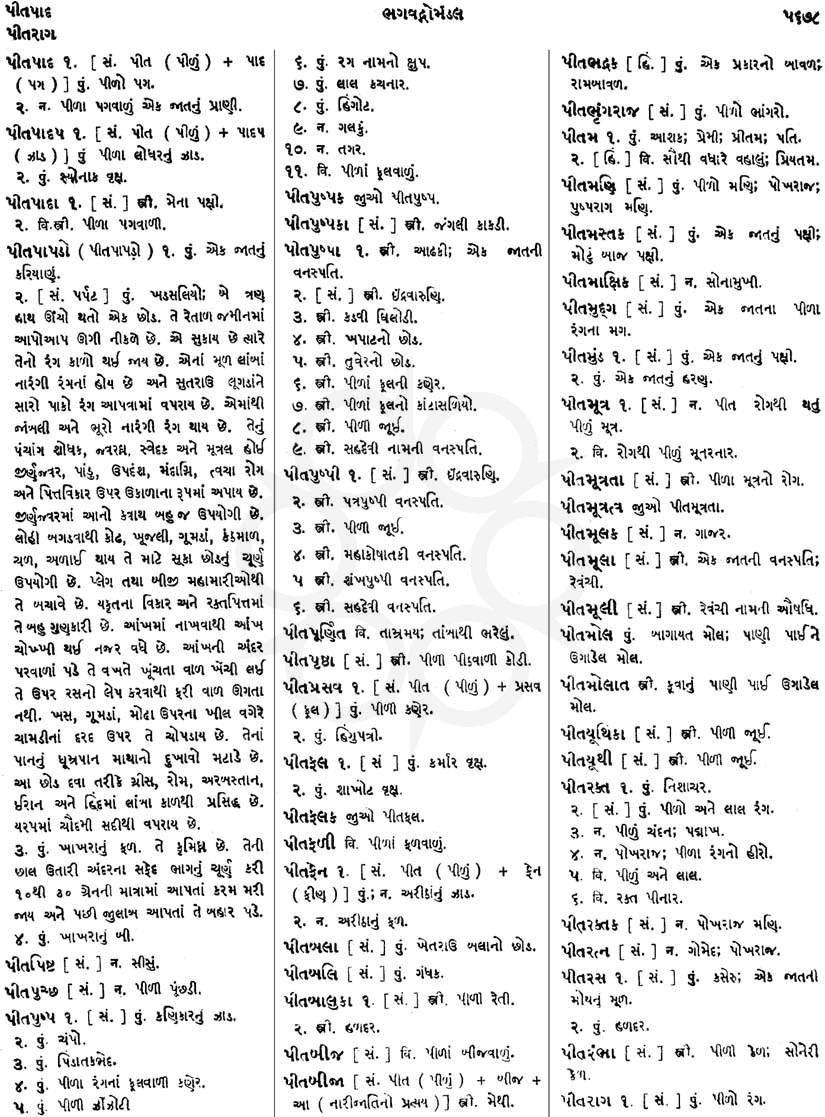 પીતપાદ
પીતરાગ
ભગવદ્ગોમંડલ
૫૬૭૮
પીતપાદ ૧. [ સં. પીત ( પીળું ) + પાદ
( પગ ) ] પું. પીળો પગ.
૨. ન. પીળા પગવાળું એક જાતનું પ્રાણી.
પીતપાદપ ૧. [ સં. પીત ( પીળું ) + પાદપ
( ઝાડ ) ] પું પીળા લોધરનું ઝાડ.
૨. પું. સ્યોનાક વૃક્ષ.
પીતપાદા ૧. [ સં. ] સ્ત્રી. મેના પક્ષી.
૨. વિ.સ્ત્રી. પીળા પગવાળી.
પીતપાપડો ( પીતપાપડ઼ો ) ૧. પું. એક જાતનું
કરિયાણું.
૨. [ સં. પર્પટ ] પું. ખડસલિયો; બે ત્રણ
હાથ ઊંચો થતો એક છોડ. તે રેતાળ જમીનમાં
આપોઆપ ઊગી નીકળે છે. એ સુકાય છે ત્યારે
તેનો રંગ કાળો થઈ જાય છે. એનાં મૂળ લાંબાં
નારંગી રંગનાં હોય છે અને સુતરાઉ લૂગડાંને
સારો પાકો રંગ આપવામાં વપરાય છે. એમાંથી
જાંબલી અને ભૂરો નારંગી રંગ થાય છે. તેનું
પંચાંગ શોધક, જ્વરઘ્ન, સ્વેદક અને મૂત્રલ હોઈ
જીર્ણજ્વર, પાંડુ, ઉપદંશ, મંદાગ્નિ, ત્વચા રોગ
અને પિત્તવિકાર ઉપર ઉકાળાના રૂપમાં અપાય છે.
જીર્ણજ્વરમાં આનો કવાથ બહુ જ ઉપયોગી છે.
લોહી બગડવાથી કોઢ, ખૂજલી, ગૂમડાં, કંઠમાળ,
ચળ, અળાઈ થાય તે માટે સૂકા છોડનું ચૂર્ણ
ઉપયોગી છે. પ્લેગ તથા બીજી મહામારીઓથી
તે બચાવે છે. યકૃતના વિકાર અને રક્તપિત્તમાં
તે બહુ ગુણકારી છે. આંખમાં નાખવાથી આંખ
ચોખ્ખી થઈ નજર વધે છે. આંખની અંદર
પરવાળાં પડે તે વખતે ખૂંચતા વાળ ખેંચી લઈ
તે ઉપર રસનો લેપ કરવાથી ફરી વાળ ઊગતા
નથી. ખસ, ગૂમડાં, મોઢા ઉપરના ખીલ વગેરે
ચામડીનાં દરદ ઉપર તે ચોપડાય છે. તેનાં
પાનનું ધૂમ્રપાન માથાનો દુખાવો મટાડે છે.
આ છોડ દવા તરીકે ગ્રીસ, રોમ, અરબસ્તાન,
ઈરાન અને હિંદમાં લાંબા કાળથી પ્રસિદ્ધ છે.
યરપમાં ચૌદમી સદીથી વપરાય છે.
૩. પું. ખાખરાનું ફળ. તે કૃમિઘ્ન છે. તેની
છાલ ઉતારી અંદરના સફેદ ભાગનું ચૂર્ણ કરી
૧૦થી ૩૦ ગ્રેનની માત્રામાં આપતાં કરમ મરી
જાય અને પછી જુલાબ આપતાં તે બહાર પડે.
૪. પું. ખાખરાનું બી.
પીતપિષ્ટ [ સં. ] ન. સીસું.
પીતપુચ્છ [ સં. ] ન. પીળી પૂંછડી.
પીતપુષ્પ ૧. [ સં. ] પું. કણિકારનું ઝાડ.
૨. પું. ચંપો.
૩. પું. પિંડાતકભેદ.
૪. પું. પીળા રંગનાં ફૂલવાળી કણેર.
૫. પું. પીળી ઝીંઝોટી
૬. પું. રગ નામનો ક્ષુપ.
૭. પું. લાલ કચનાર.
૮. પું. હિંગોટ.
૯. ન. ગલકું.
૧૦. ન. તગર.
૧૧. વિ. પીળાં ફૂલવાળું.
પીતપુષ્પક જુઓ પીતપુષ્પ.
પીતપુષ્પકા [ સં. ] સ્ત્રી. જંગલી કાકડી.
પીતપુષ્પા ૧. સ્ત્રી. આઢકી; એક જાતની
વનસ્પતિ.
૨. [ સં. ] સ્ત્રી. ઈંદ્રવારુણિ.
૩. સ્ત્રી. કડવી ઘિલોડી.
૪. સ્ત્રી. ખપાટનો છોડ.
૫. સ્ત્રી. તુવેરનો છોડ.
૬. સ્ત્રી. પીળાં ફૂલની કણેર.
૭. સ્ત્રી. પીળાં ફૂલનો કાંટાસળિયો.
૮. સ્ત્રી. પીળી જૂઈ.
૯. સ્ત્રી. સહદેવી નામની વનસ્પતિ.
પીતપુષ્પી ૧. [ સં. ] સ્ત્રી. ઈંદ્રવારુણિ.
૨. સ્ત્રી. પત્રપુષ્પી વનસ્પતિ.
૩. સ્ત્રી. પીળી જૂઈ.
૪. સ્ત્રી. મહાકોષાતકી વનસ્પતિ.
૫ સ્ત્રી. શંખપુષ્પી વનસ્પતિ.
૬. સ્ત્રી. સહદેવી વનસ્પતિ.
પીતપૂર્ણિત વિ. તામ્રમય; તાંબાથી ભરેલું.
પીતપૃષ્ઠા [ સં. ] સ્ત્રી. પીળા પીઠવાળી કોડી.
પીતપ્રસવ ૧. [ સં. પીત ( પીળું ) + પ્રસવ
( ફૂલ ) ] પું. પીળી કણેર.
૨. પું. હિંગુપત્રી.
પીતફલ ૧. [ સં ] પું. કર્માર વૃક્ષ.
૨. પું. શાખોટ વૃક્ષ.
પીતફલક જુઓ પીતફલ.
પીતફળી વિ. પીળાં ફળવાળું.
પીતફેન ૧. [ સં. પીત ( પીળું ) + ફેન
( ફીણ ) ] પું.; ન. અરીઠાંનું ઝાડ.
૨. ન. અરીઠાનું ફળ.
પીતબલા [ સં. ] પું. ખેતરાઉ બલાનો છોડ.
પીતબલિ [ સં. ] પું. ગંધક.
પીતબાલુકા ૧. [ સં. ] સ્ત્રી. પીળી રેતી.
૨. સ્ત્રી. હળદર.
પીતબીજ [ સં. ] વિ. પીળાં બીજવાળું.
પીતબીજા [ સં. પીત ( પીળું ) + બીજ +
આ ( નારીજાતિનો પ્રત્યય ) ] સ્ત્રી. મેથી.
પીતભદ્રક [ હિં. ] પું. એક પ્રકારનો બાવળ;
રામબાવળ.
પીતભૃંગરાજ [ સં. ] પું. પીળો ભાંગરો.
પીતમ ૧. પું. આશક; પ્રેમી; પ્રીતમ; પતિ.
૨. [ હિં. ] વિ. સૌથી વધારે વહાલું; પ્રિયતમ.
પીતમણિ [ સં. ] પું. પીળો મણિ; પોખરાજ;
પુષ્પરાગ મણિ.
પીતમસ્તક [ સં. ] પું. એક જાતનું પક્ષી;
મોટું બાજ પક્ષી.
પીતમાક્ષિક [ સં. ] ન. સોનામુખી.
પીતમુદ્ગ [ સં. ] પું. એક જાતના પીળા
રંગના મગ.
પીતમુંડ ૧. [ સં. ] પું. એક જાતનું પક્ષી.
૨. પું. એક જાતનું હરણ.
પીતમૂત્ર ૧. [ સં. ] ન. પીત રોગથી થતું
પીળું મૂત્ર.
૨. વિ. રોગથી પીળું મૂતરનાર.
પીતમૂત્રતા [ સં. ] સ્ત્રી. પીળા મૂત્રનો રોગ.
પીતમૂત્રત્વ જુઓ પીતમૂત્રતા.
પીતમૂલક [ સં. ] ન. ગાજર.
પીતમૂલા [ સં. ] સ્ત્રી. એક જાતની વનસ્પતિ;
રેવંચી.
પીતમૂલી [ સં. ] સ્ત્રી. રેવંચી નામની ઔષધિ.
પીતમોલ પું. બાગાયત મોલ; પાણી પાઈને
ઉગાડેલ મોલ.
પીતમોલાત સ્ત્રી. કૂવાનું પાણી પાઈ ઉગાડેલ
મોલ.
પીતયૂથિકા [ સં. ] સ્ત્રી. પીળી જૂઈ.
પીતયૂથી [ સં. ] સ્ત્રી. પીળી જૂઈ.
પીતરક્ત ૧. પું. નિશાચર.
૨. [ સં. ] પું. પીળો અને લાલ રંગ.
૩. ન. પીળું ચંદન; પદ્માખ.
૪. ન. પોખરાજ; પીળા રંગનો હીરો.
૫. વિ. પીળું અને લાલ.
૬. વિ. રક્ત પીનાર.
પીતરક્તક [ સં. ] ન. પોખરાજ મણિ.
પીતરત્ન [ સં. ] ન. ગોમેદ; પોખરાજ.
પીતરસ ૧. [ સં. ] પું. કસેરુ; એક જાતની
મોથનું મૂળ.
૨. પું. હળદર.
પીતરંભા [ સં. ] સ્ત્રી. પીળી કેળ; સોનેરી
કેળ.
પીતરાગ ૧. [ સં. ] પું. પીળો રંગ.